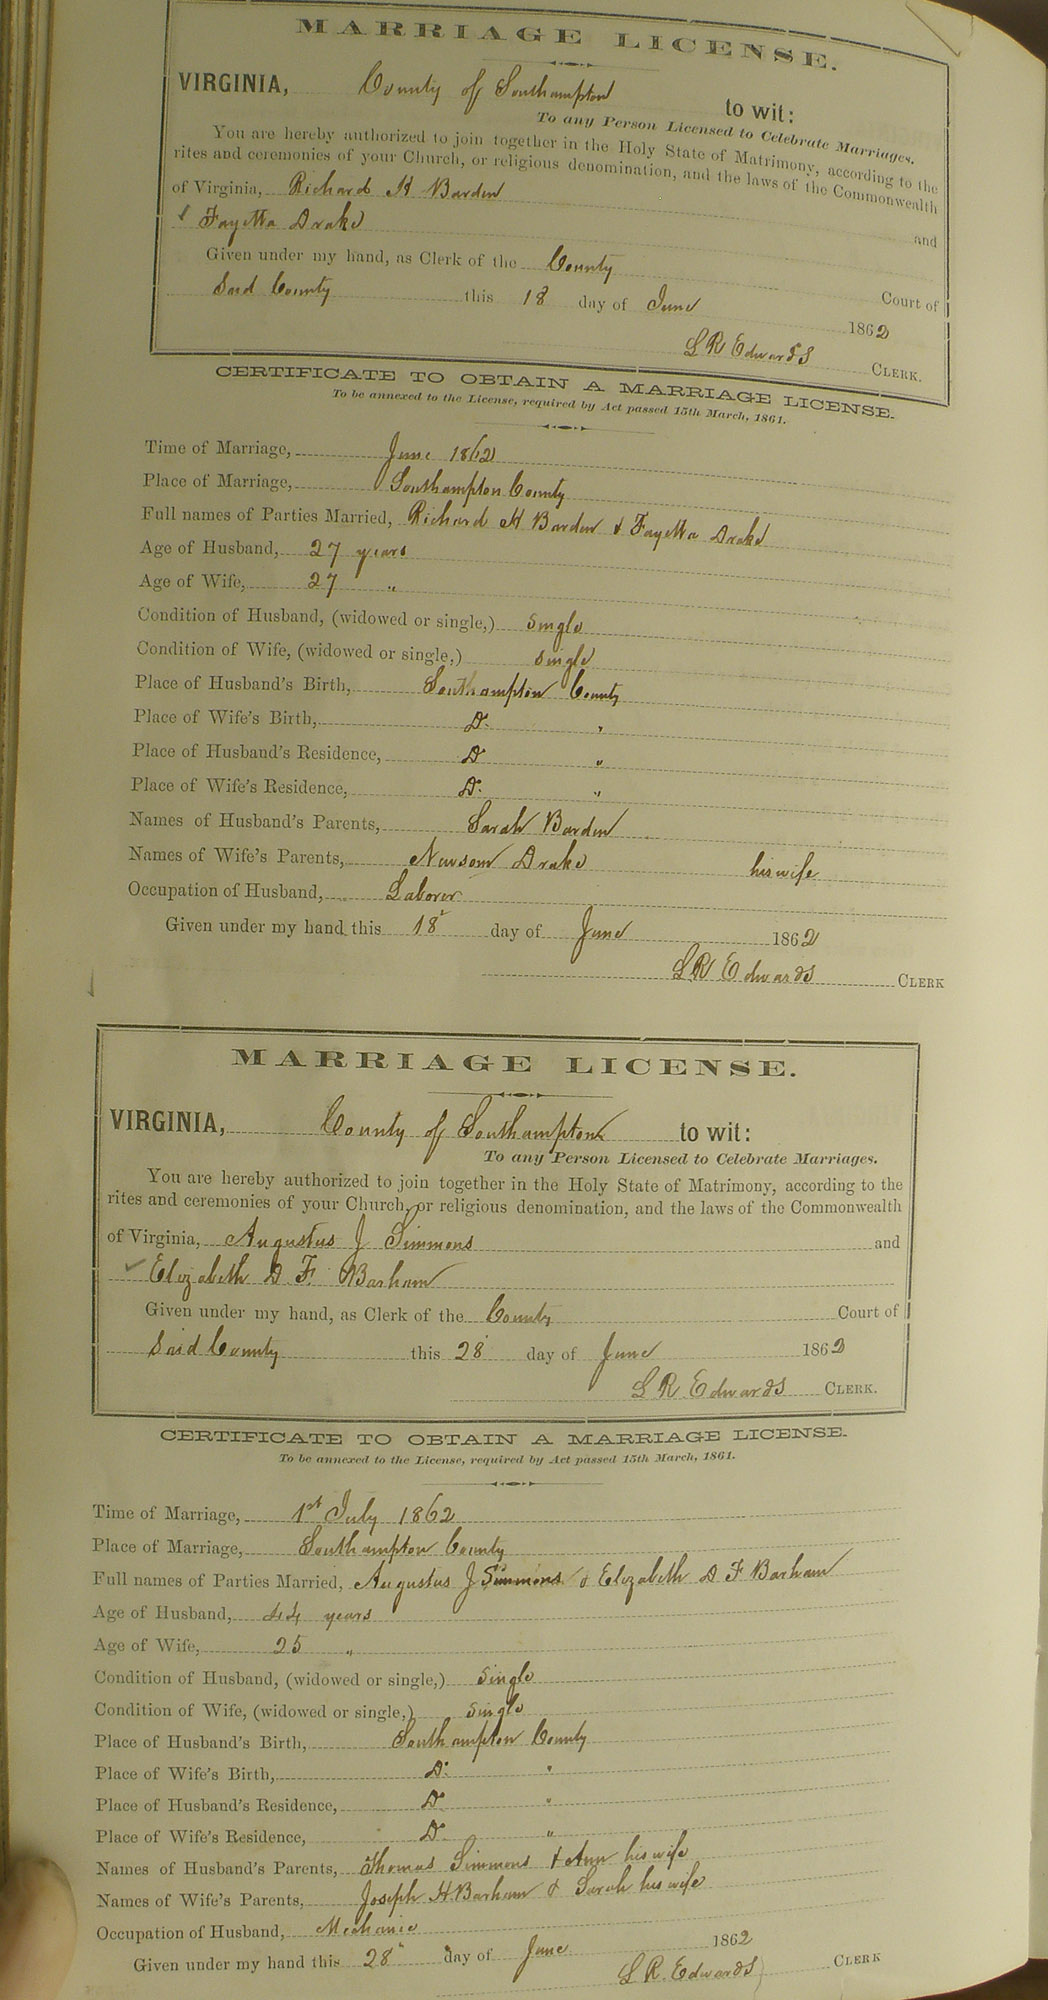 MARRIAGE LICENSE.
VIRGINIA, County of Southampton to wit:
To any Person Licensed to Celebrate Marriages.
You are hereby authorized to join together in the Holy State of Matrimony, according to the
rites and ceremonies of your Church, or religious denomination, and the laws of the Commonwealth
of Virginia, Richard H Barden and
Fayetta Drake
Given under my hand, as Clerk of the County Court of
Said County this 18 day of June 1862
L R Edwards CLERK.
CERTIFICATE TO OBTAIN A MARRIAGE LICENSE.
To be annexed to the License, required by Act passed 15th March, 1861.
Time of Marriage, June 1862
Place of Marriage, Southampton County
Full names of Parties Married, Richard H Barden & Fayetta Drake
Age of Husband, 27 years
Age of Wife, 27 "
Condition of Husband, (widowed or single,) single
Condition of Wife, (widowed or single,) single
Place of Husband's Birth, Southampton County
Place of Wife's Birth, Do "
Place of Husband's Residence, Do "
Place of Wife's Residence, Do "
Names of Husband's Parents, Sarah Barden
Names of Wife's Parents, Newsom Drake his wife
Occupation of Husband, Laborer
Given under my hand this 18 day of June 1862
L R Edwards CLERK
MARRIAGE LICENSE.
VIRGINIA, County of Southampton to wit:
To any Person Licensed to Celebrate Marriages.
You are hereby authorized to join together in the Holy State of Matrimony, according to the
rites and ceremonies of your Church, or religious denomination, and the laws of the Commonwealth
of Virginia, Augustus J Simmons and
Elizabeth D F Barham
Given under my hand, as Clerk of the County Court of
Said County this 28 day of June 1862
L R Edwards CLERK.
CERTIFICATE TO OBTAIN A MARRIAGE LICENSE.
To be annexed to the License, required by Act passed 15th March, 1861.
Time of Marriage, 1st July 1862
Place of Marriage, Southampton County
Full names of Parties Married, Augustus J Simmons & Elizabeth D F Barham
Age of Husband, 44 years
Age of Wife, 25 "
Condition of Husband, (widowed or single,) single
Condition of Wife, (widowed or single,) single
Place of Husband's Birth, Southampton County
Place of Wife's Birth, Do "
Place of Husband's Residence, Do "
Place of Wife's Residence, Do "
Names of Husband's Parents, Thomas Simmons & Ann his wife
Names of Wife's Parents, Joseph H Barham & Sarah his wife
Occupation of Husband, Mechanic
Given under my hand this 28 day of June 1862
L R. Edwards CLERK